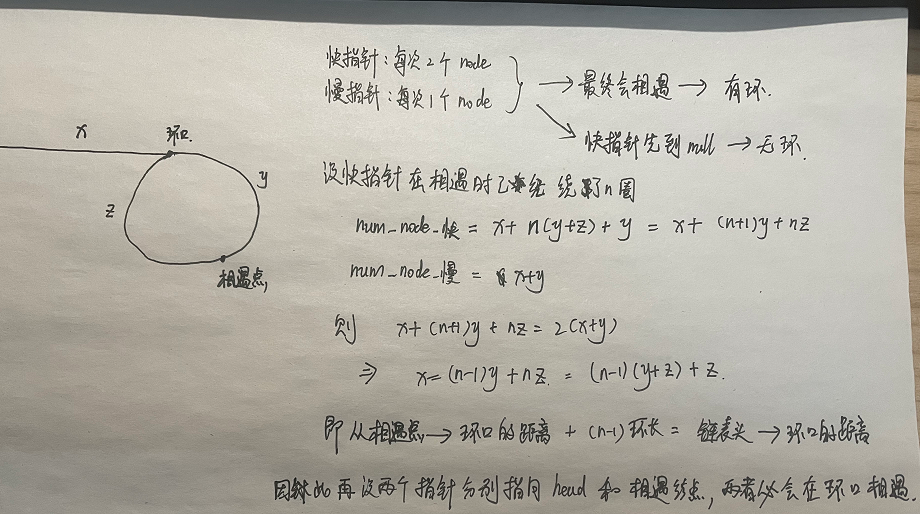 快指针:每次2个node
慢指针:每次1个node
→最终会相遇→有环.
快指针先到null→无环.
x
环口.
y
z
相遇点,
设快指针在相遇时已经绕了n圈
num_node_快 = x+n(y+z)+y = x+(n+1)y+nz
num_node_慢 = x+y
则 x+(n+1)y+nz=2(x+y)
⇒ x=(n-1)y+nz. = (n-1)(y+z)+z.
即从相遇点→环口的距离+(n-1)环长=链表头→环口的距离
因此再设两个指针分别指向head和相遇结点,两者必会在环口相遇.